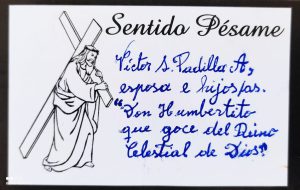 Sentido Pésame
Víctor S. Padilla A,
esposa e hijos/as.
"Don Humbertito
que goce del Reino
Celestial de Dios."